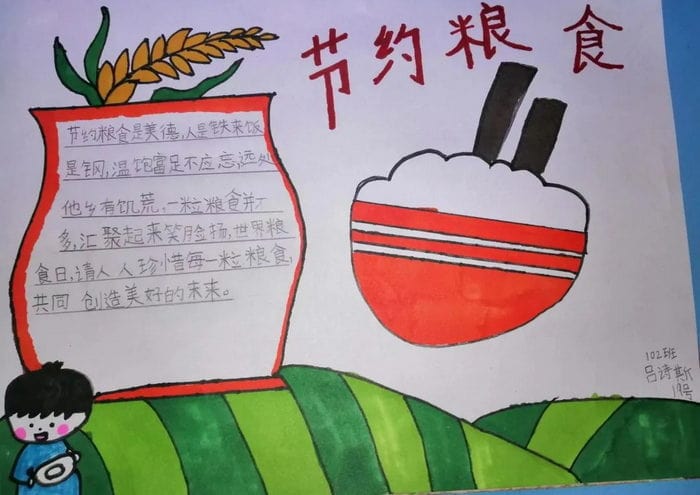 节约粮食
节约粮食是美德,人是铁来饭
是钢,温饱富足不应忘,远处
他乡有饥荒,一粒粮食并不
多,汇聚起来笑脸扬,世界粮
食日,请人人珍惜每一粒粮食,
共同创造美好的未来。
102班
吕诗斯
19号